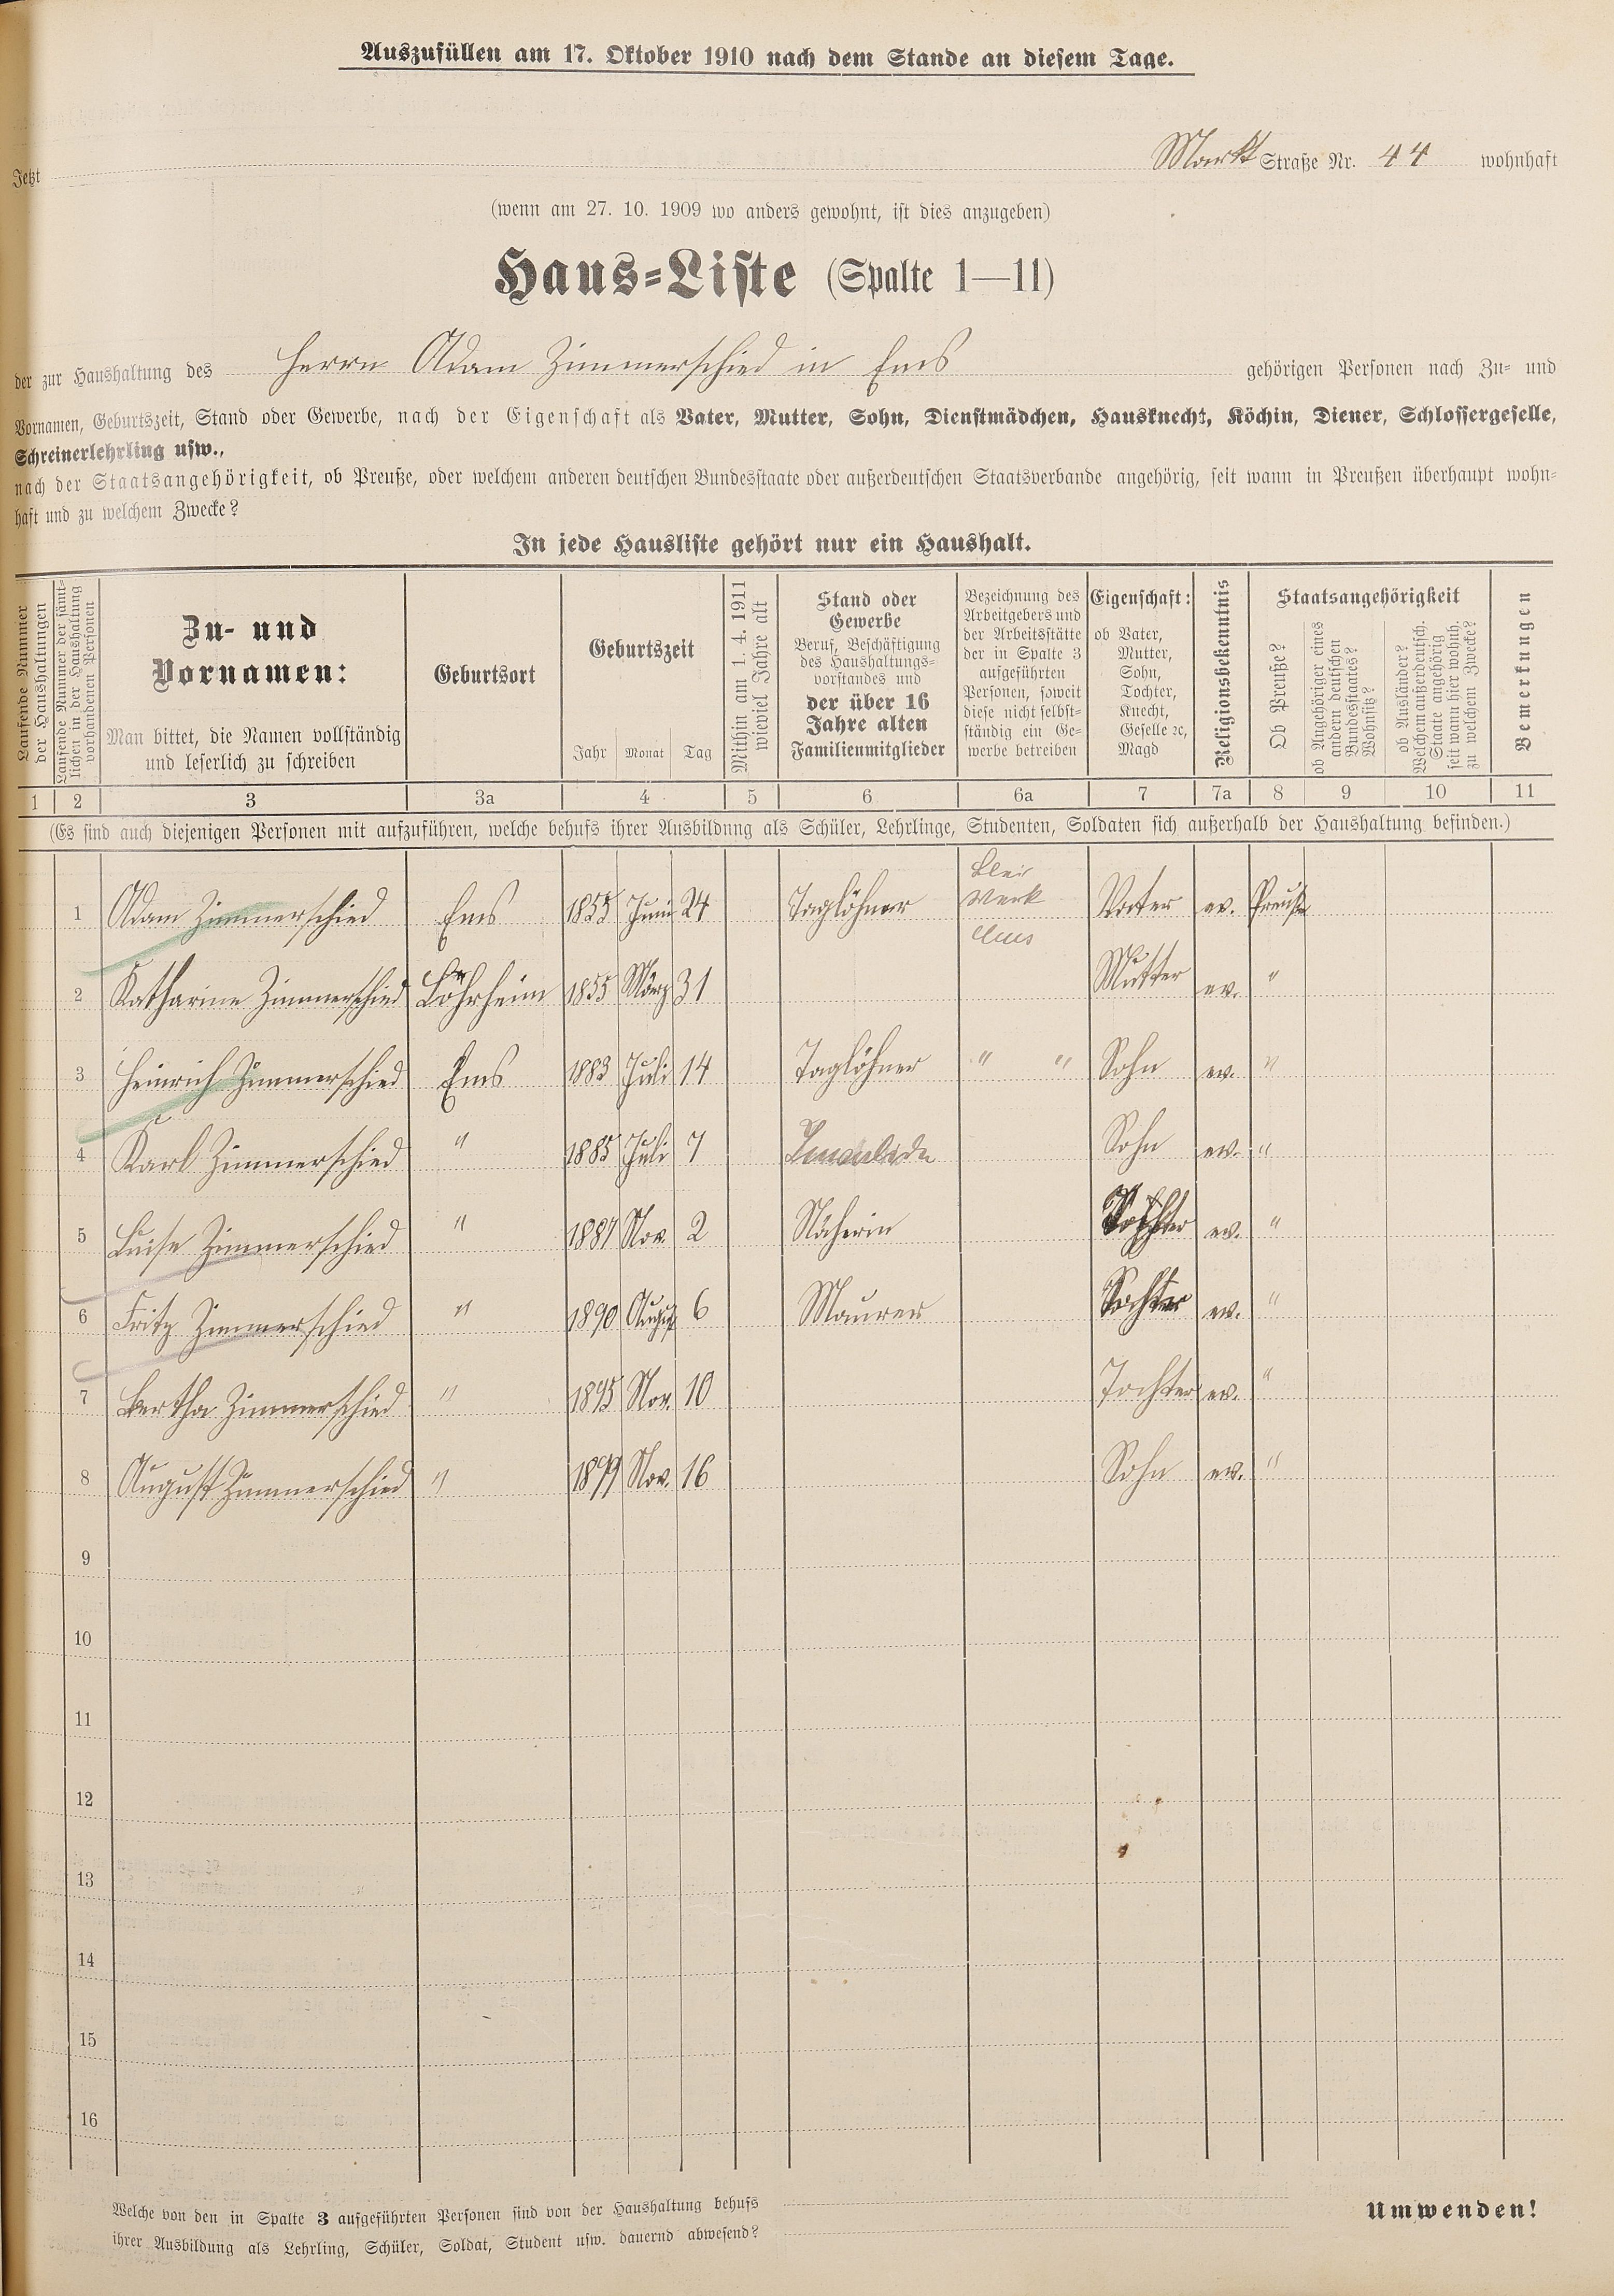 Auszufüllen am 17. Oktober 1910 nach dem Stande an diesem Tage.
Jetzt Markt Straße Nr. 44 wohnhaft
(wenn am 27. 10. 1909 wo anders gewohnt, ist dies anzugeben)
Haus-Liste (Spalte 1—11)
der zur Haushaltung des Herrn Adam Zimmerschied in Ems gehörigen Personen nach Zu- und
Vornamen, Geburtszeit, Stand oder Gewerbe, nach der Eigenschaft als Vater, Mutter, Sohn, Dienstmädchen, Hausknecht, Köchin, Diener, Schlossergeselle,
Schreinerlehrling usw.,
nach der Staatsangehörigkeit, ob Preuße, oder welchem anderen deutschen Bundesstaate oder außerdeutschen Staatsverbande angehörig, seit wann in Preußen überhaupt wohn-
haft und zu welchem Zwecke?
In jede Hausliste gehört nur ein Haushalt.
Laufende Nummer
der Haushaltungen
Laufende Nummer der sämt-
lichen in der Haushaltung
vorhandenen Personen
Zu- und
Vornamen:
Man bittet, die Namen vollständig
und leserlich zu schreiben
Geburtsort
Geburtszeit
Jahr Monat Tag
Mithin am 1. 4. 1911
wieviel Jahre alt
Stand oder
Gewerbe
Beruf, Beschäftigung
des Haushaltungs-
vorstandes und
der über 16
Jahre alten
Familienmitglieder
Bezeichnung des
Arbeitgebers und
der Arbeitsstätte
der in Spalte 3
aufgeführten
Personen, soweit
diese nicht selbst-
ständig ein Ge-
werbe betreiben
Eigenschaft:
ob Vater,
Mutter,
Sohn,
Tochter,
Knecht,
Geselle ꝛc,
Magd
Religionsbekenntnis
Staatsangehörigkeit
Ob Preuße?
ob Angehöriger eines
andern deutschen
Bundesstaates?
Wohnsitz?
ob Ausländer?
Welchem außerdeutsch.
Staate angehörig
seit wann hier wohnh.
zu welchem Zwecke?
Bemerkungen
1 2 3 3a 4 5 6 6a 7 7a 8 9 10 11
(Es sind auch diejenigen Personen mit aufzuführen, welche behufs ihrer Ausbildung als Schüler, Lehrlinge, Studenten, Soldaten sich außerhalb der Haushaltung befinden.)
1 Adam Zimmerschied Ems 1855 Juni 24 Taglöhner Blei Werk Ems Vater ev. Preuße
2 Katharine Zimmerschied 1855 März 31 Mutter ev. "
3 Heinrich Zimmerschied Ems 1883 Juli 14 Taglöhner " " Sohn ev. "
4 Karl Zimmerschied " 1885 Juli 7 Sohn ev. "
5 Luise Zimmerschied " 1887 Nov. 2 Näherin Tochter ev. "
6 Fritz Zimmerschied " 1890 August 6 Maurer ev. "
7 Bertha Zimmerschied " 1895 Nov. 10 Tochter ev. "
8 August Zimmerschied " 1899 Nov. 16 Sohn ev. "
9
10
11
12
13
14
15
16
Welche von den in Spalte 3 aufgeführten Personen sind von der Haushaltung behufs
ihrer Ausbildung als Lehrling, Schüler, Soldat, Student usw. dauernd abwesend?
Umwenden!